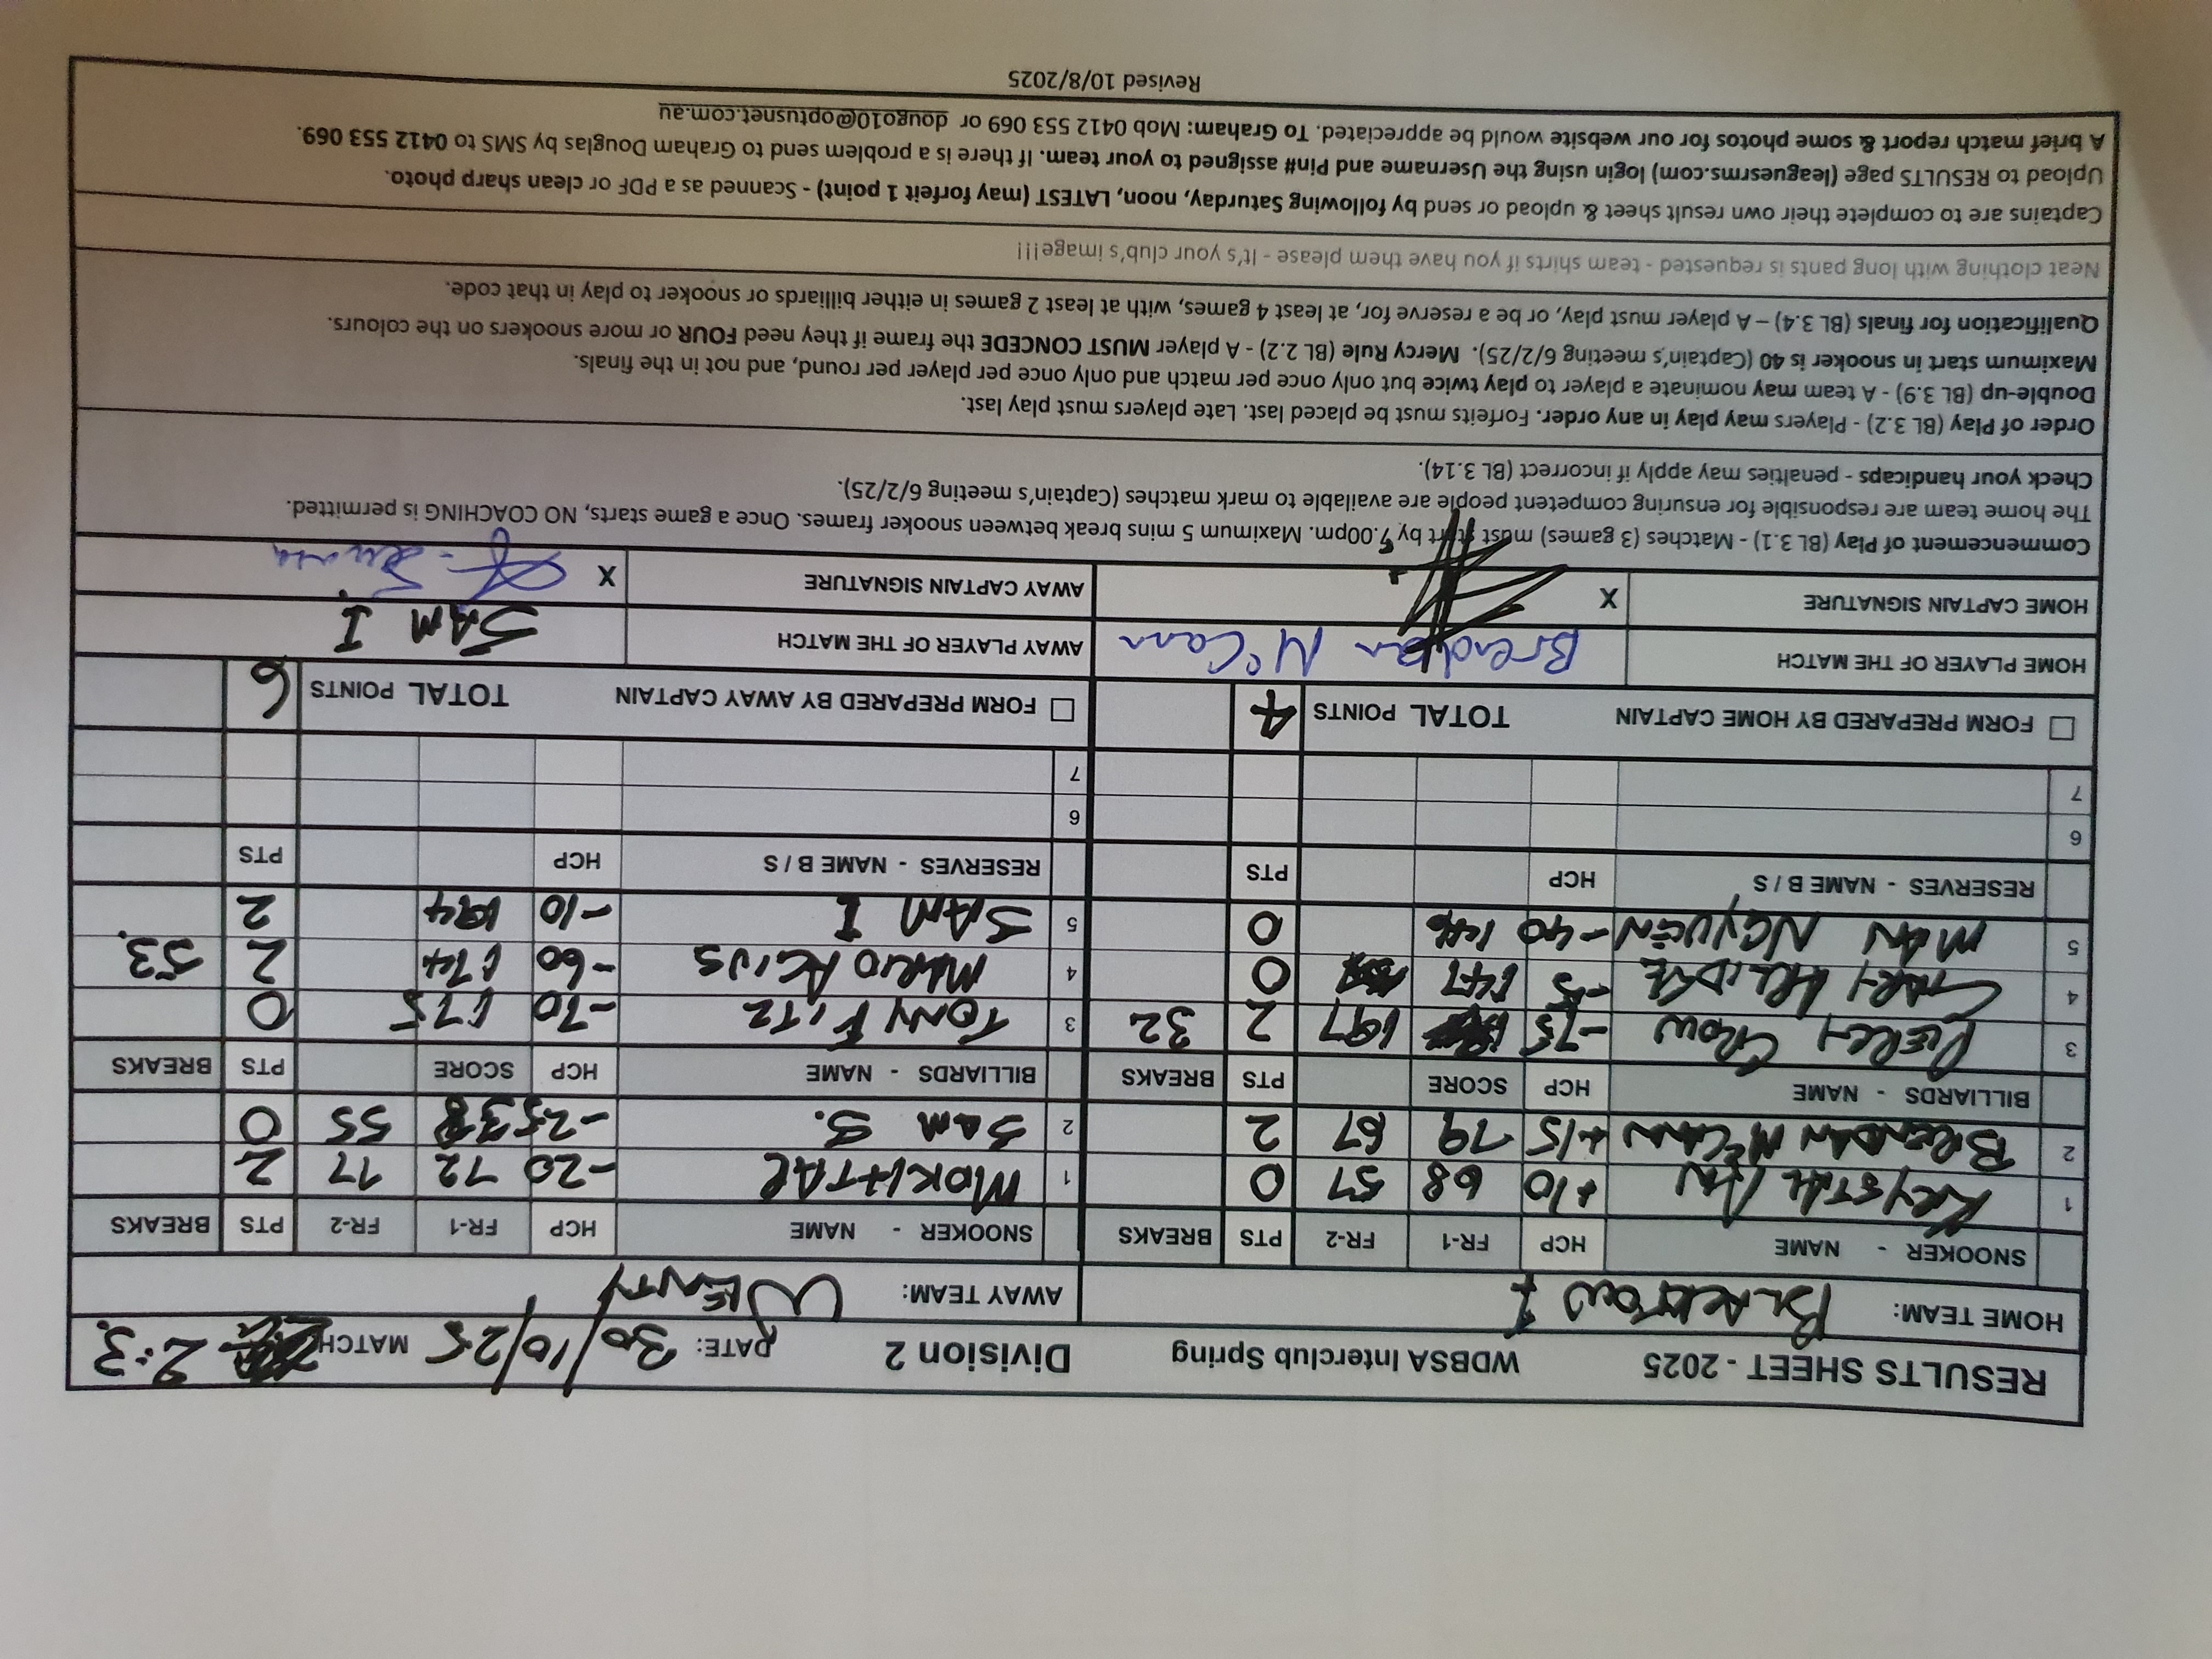 RESULTS SHEET - 2025 WDBSA Interclub Spring Division 2 DATE: 30/10/25 MATCH 2:3.
HOME TEAM: BLACKTOWN AWAY TEAM: WENTY
SNOOKER - NAME HCP FR-1 FR-2 PTS BREAKS SNOOKER - NAME HCP FR-1 FR-2 PTS BREAKS
1 KRYSTAL +10 68 57 0 1 MOKHTAR -20 72 77 2
2 BRENDAN McCANN +15 79 67 2 2 SAM S. -25 38 55 0
BILLIARDS - NAME HCP SCORE PTS BREAKS BILLIARDS - NAME HCP SCORE PTS BREAKS
3 PERCY CROW -75 197 2 32 3 TONY FITZ -70 175 0
4 -5 147 0 4 MARIO -60 174 2 53.
5 MAN NGYUEN -40 146 0 5 SAM I -10 194 2
RESERVES - NAME B / S HCP PTS RESERVES - NAME B / S HCP PTS
6 6
7 7
FORM PREPARED BY HOME CAPTAIN TOTAL POINTS 4 FORM PREPARED BY AWAY CAPTAIN TOTAL POINTS 6
HOME PLAYER OF THE MATCH Brendan McCann AWAY PLAYER OF THE MATCH SAM I
HOME CAPTAIN SIGNATURE X AWAY CAPTAIN SIGNATURE X
Commencement of Play (BL 3.1) - Matches (3 games) must start by 7.00pm. Maximum 5 mins break between snooker frames. Once a game starts, NO COACHING is permitted.
The home team are responsible for ensuring competent people are available to mark matches (Captain's meeting 6/2/25).
Check your handicaps - penalties may apply if incorrect (BL 3.14).
Order of Play (BL 3.2) - Players may play in any order. Forfeits must be placed last. Late players must play last.
Double-up (BL 3.9) - A team may nominate a player to play twice but only once per match and only once per player per round, and not in the finals.
Maximum start in snooker is 40 (Captain's meeting 6/2/25). Mercy Rule (BL 2.2) - A player MUST CONCEDE the frame if they need FOUR or more snookers on the colours.
Qualification for finals (BL 3.4) – A player must play, or be a reserve for, at least 4 games, with at least 2 games in either billiards or snooker to play in that code.
Neat clothing with long pants is requested - team shirts if you have them please - It's your club's image!!!
Captains are to complete their own result sheet & upload or send by following Saturday, noon, LATEST (may forfeit 1 point) - Scanned as a PDF or clean sharp photo.
Upload to RESULTS page (leaguesrms.com) login using the Username and Pin# assigned to your team. If there is a problem send to Graham Douglas by SMS to 0412 553 069.
A brief match report & some photos for our website would be appreciated. To Graham: Mob 0412 553 069 or dougo10@optusnet.com.au
Revised 10/8/2025